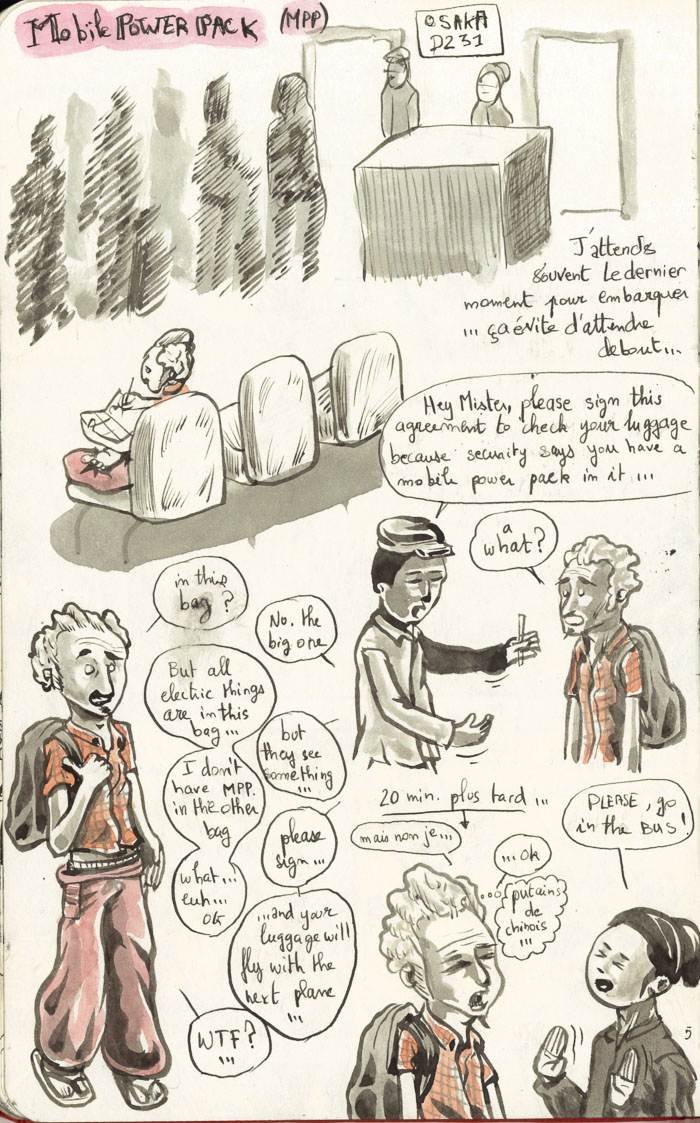 MobilE POWER PACK (MPP)
OSAKA
D231
J'attends
souvent le dernier
moment pour embarquer
... ça évite d'attendre
debout...
Hey Mister, please sign this
agreement to check your luggage
because security says you have a
mobile power pack in it ...
a
what?
in this
bag ?
No, the
big one
But all
electric things
are in this
bag ...
but
they see
something
...
I don't
have MPP.
in the other
bag
please
sign ...
what...
euh...
OK
...and your
luggage will
fly with the
next plane
...
WTF?
...
20 min. plus tard ...
mais non je...
... ok
putains
de
chinois
...
PLEASE, go
in the BUS!
5